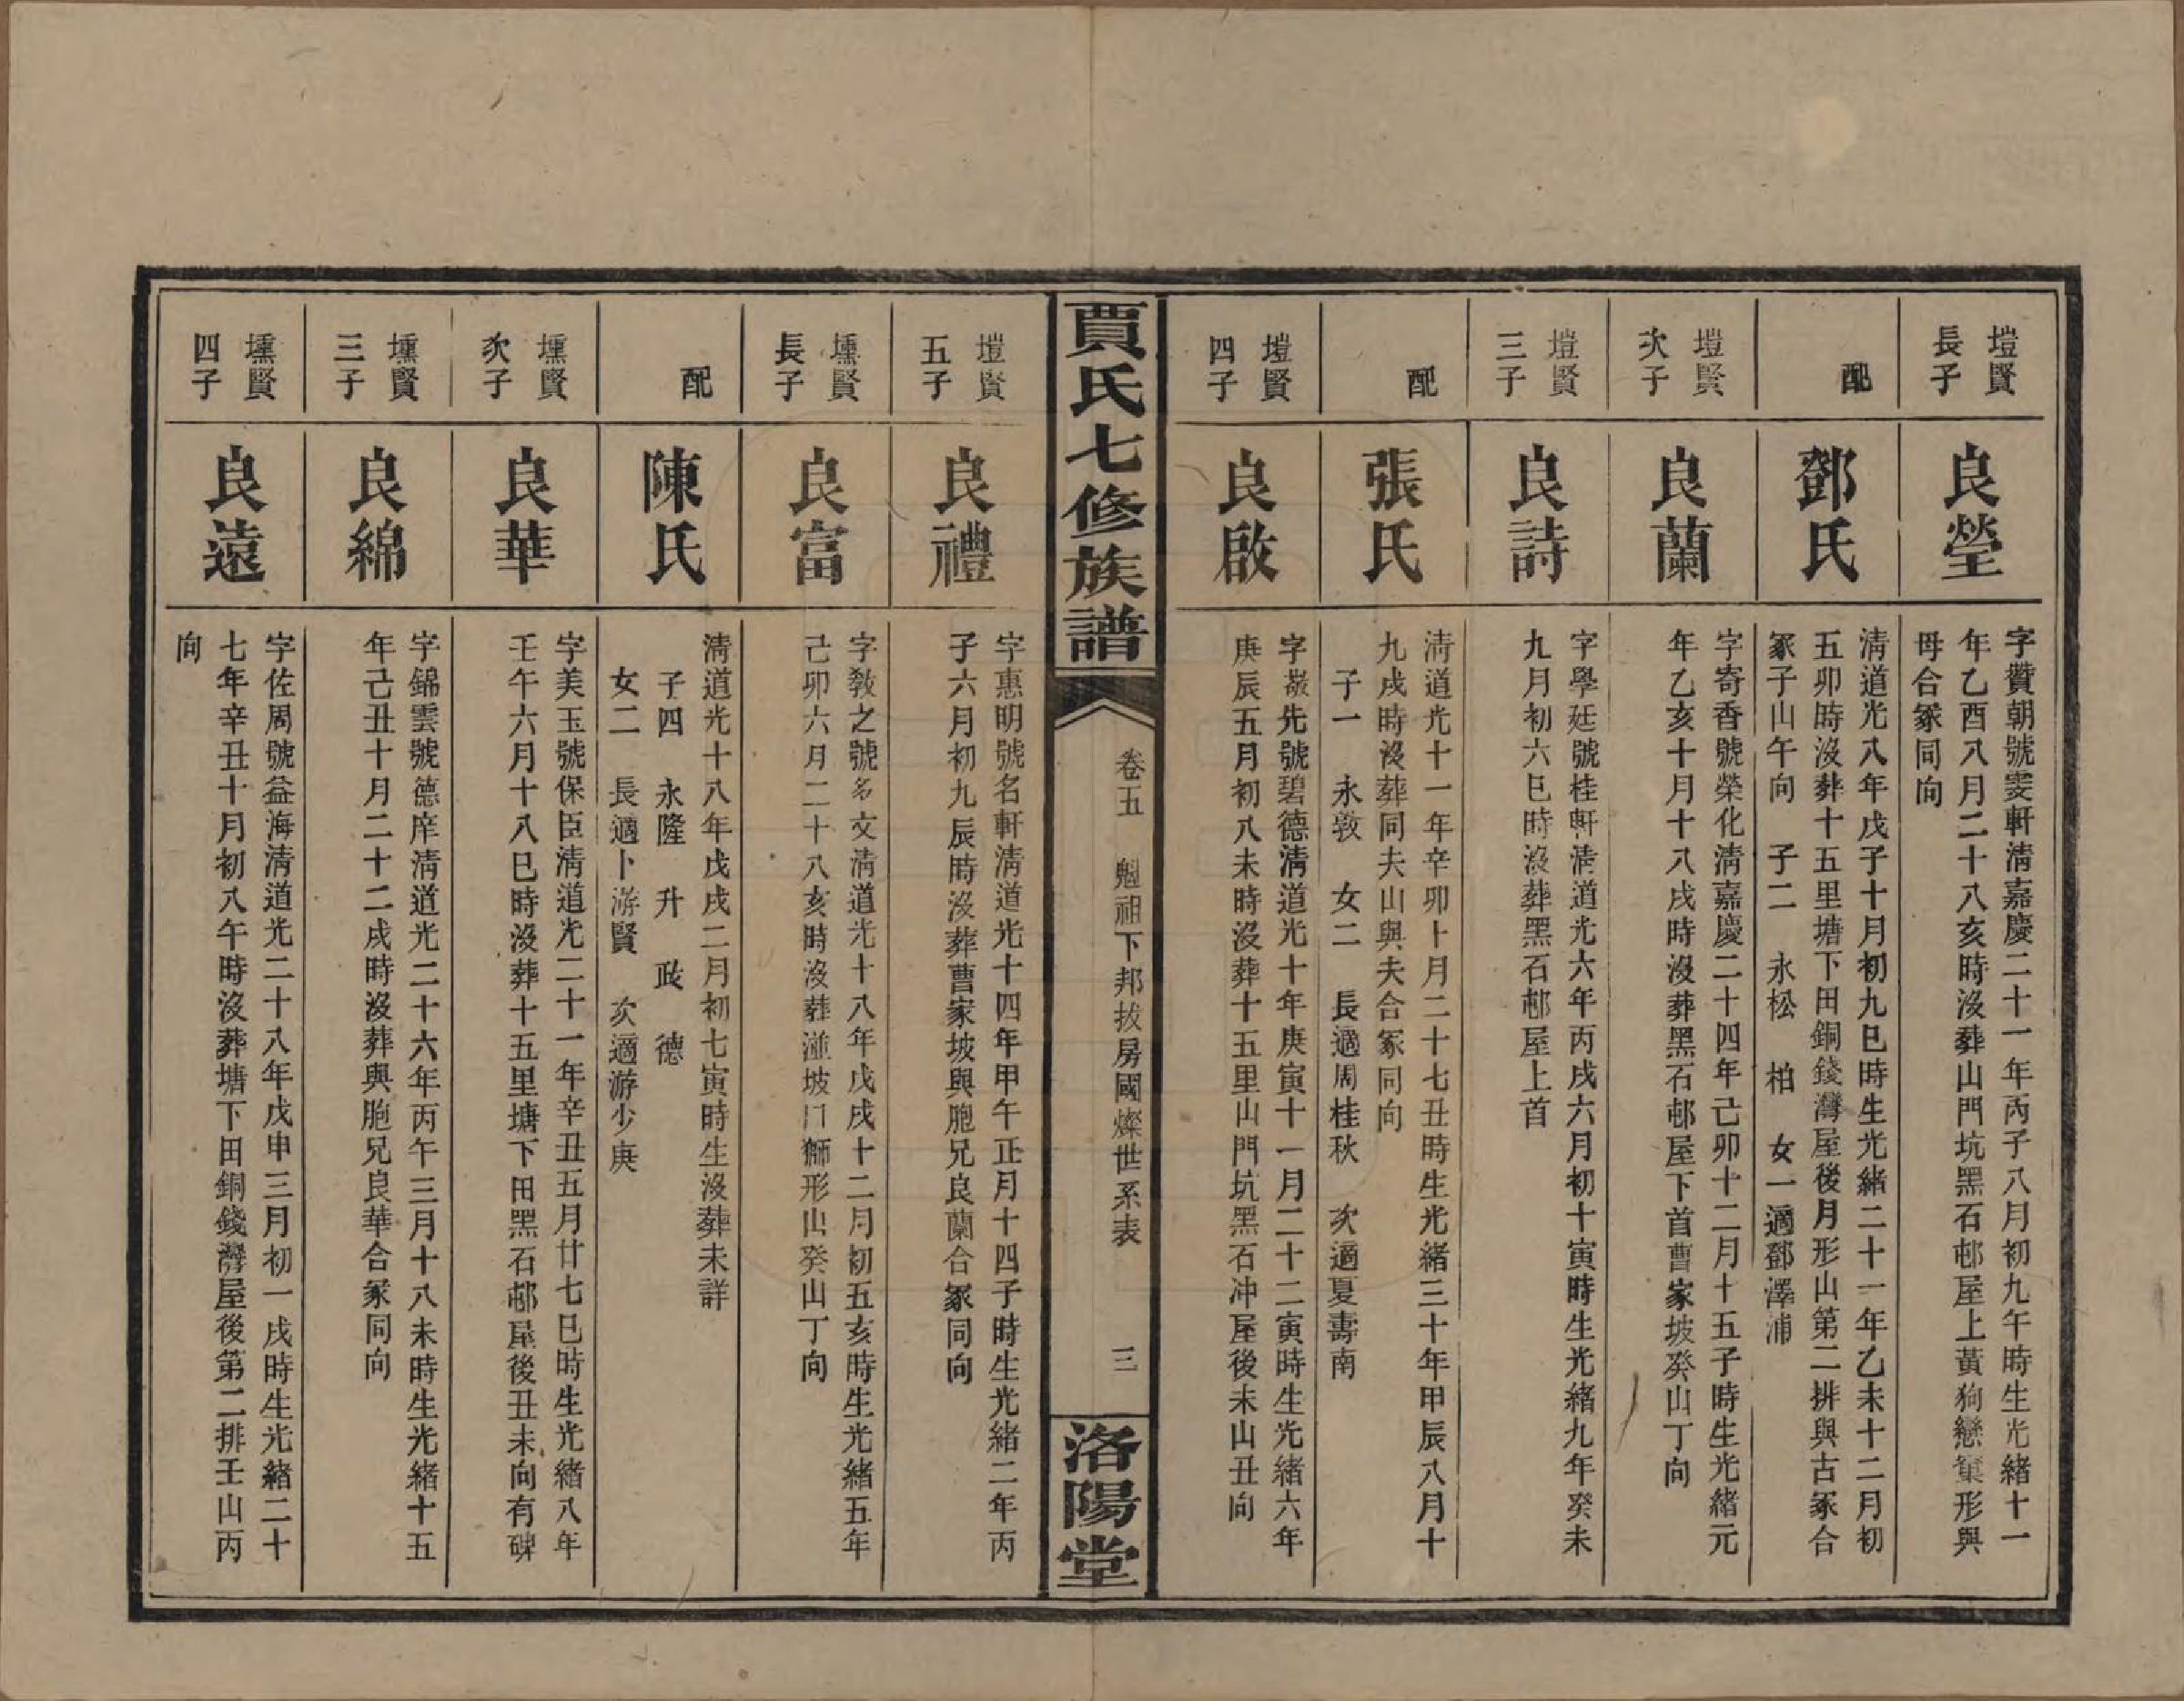 塏賢
長子
良瑩
字贊朝號雯軒淸嘉慶二十一年丙子八月初九午時生光緒十一
年乙酉八月二十八亥時沒葬山門坑黑石邨屋上黃狗戀窠形與
母合冢同向
配
鄧氏
淸道光八年戊子十月初九巳時生光緒二十一年乙未十二月初
五卯時沒葬十五里塘下田銅錢灣屋後月形山第二排與古冢合
冢子山午向　子二　永松　柏　女一適鄧澤浦
塏賢
次子
良蘭
字寄香號榮化淸嘉慶二十四年己卯十二月十五子時生光緒元
年乙亥十月十八戌時沒葬黑石邨屋下首曹家坡癸山丁向
塏賢
三子
良詩
字學廷號桂軒淸道光六年丙戌六月初十寅時生光緒九年癸未
九月初六巳時沒葬黑石邨屋上首
配
張氏
淸道光十一年辛卯十月二十七丑時生光緒三十年甲辰八月十
九戌時沒葬同夫山與夫合冢同向
子一　永敦　女二　長適周桂秋　次適夏壽南
塏賢
四子
良啟
字嶽先號碧德淸道光十年庚寅十一月二十二寅時生光緒六年
庚辰五月初八未時沒葬十五里山門坑黑石冲屋後未山丑向
賈氏七修族譜
卷五　魁祖下邦拔房國燦世系表　三
洛陽堂
塏賢
五子
良禮
字惠明號名軒淸道光十四年甲午正月十四子時生光緒二年丙
子六月初九辰時沒葬曹家坡與胞兄良蘭合冢同向
壎賢
長子
良富
字敎之號名交淸道光十八年戊戌十二月初五亥時生光緒五年
己卯六月二十八亥時沒葬湴坡口獅形山癸山丁向
配
陳氏
淸道光十八年戊戌二月初七寅時生沒葬未詳
子四　永隆　升　政　德
女二　長適卜游賢　次適游少庚
壎賢
次子
良華
字美玉號保臣淸道光二十一年辛丑五月廿七巳時生光緒八年
壬午六月十八巳時沒葬十五里塘下田黑石邨屋後丑未向有碑
壎賢
三子
良綿
字錦雲號德庠淸道光二十六年丙午三月十八未時生光緒十五
年己丑十月二十二戌時沒葬與胞兄良華合冢同向
壎賢
四子
良遠
字佐周號益海淸道光二十八年戊申三月初一戌時生光緒二十
七年辛丑十月初八午時沒葬塘下田銅錢灣屋後第二排壬山丙
向